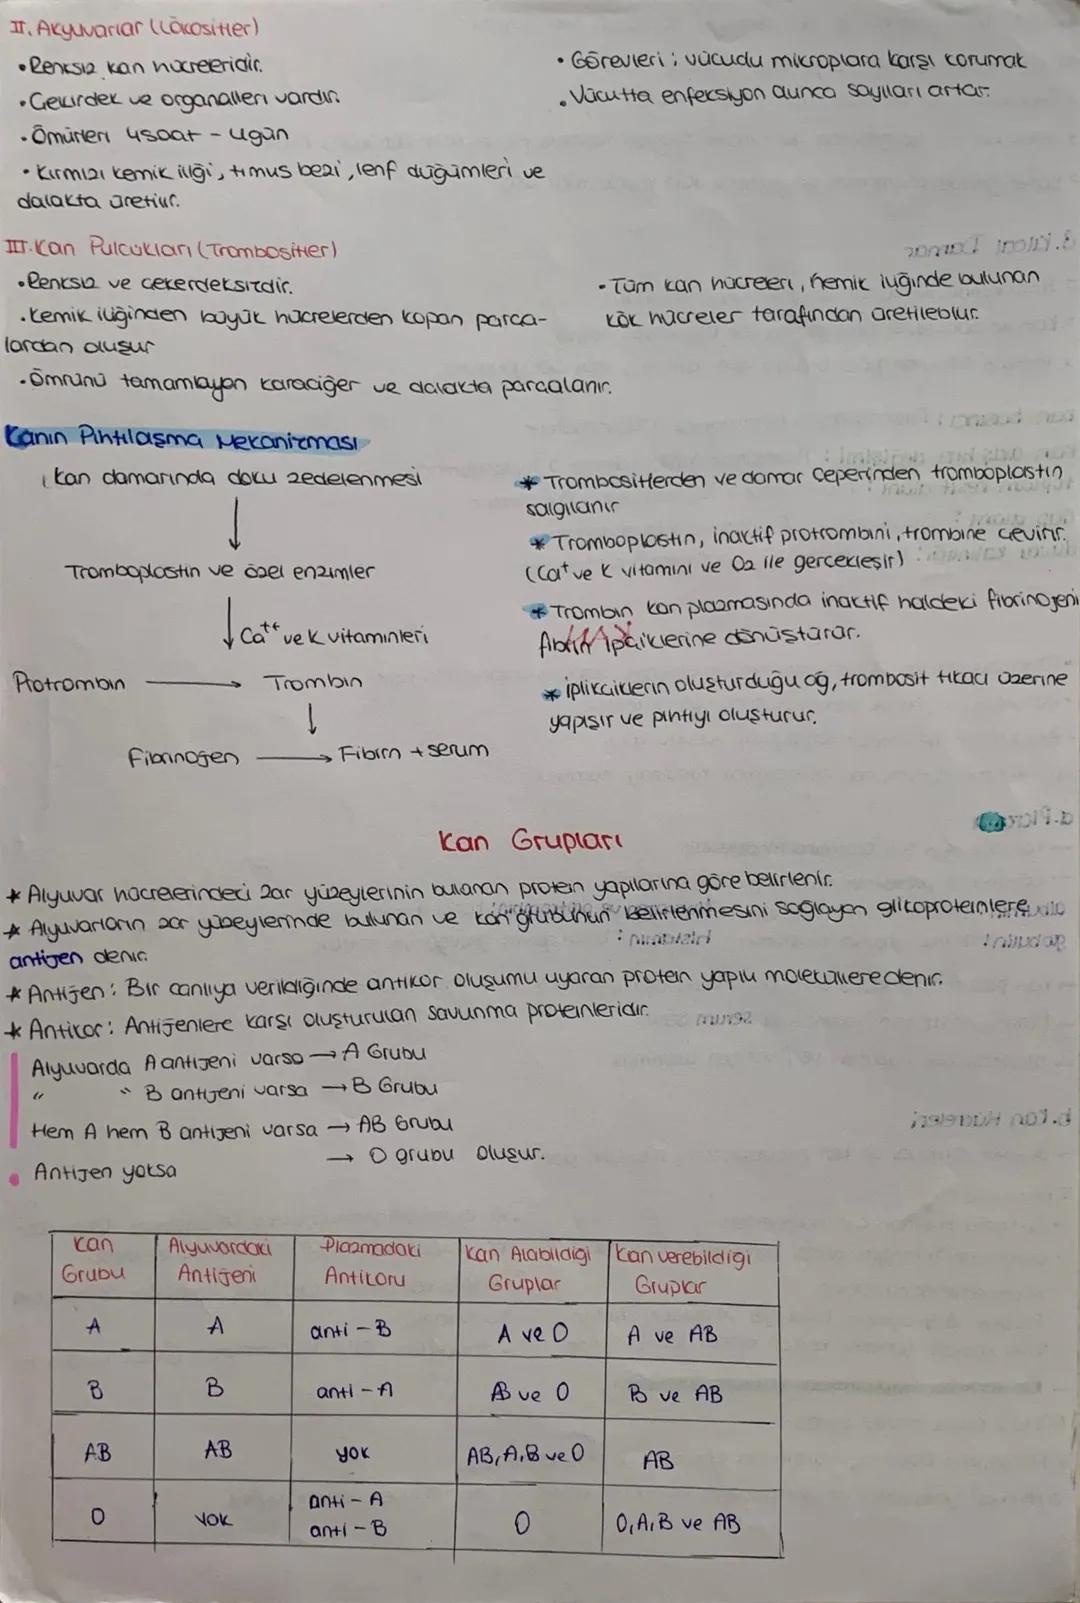 II. Akyuvarlar (Lökositler)
• Renksiz kan hücreleridir.
• Çekirdek ve organelleri vardır.
• Ömürleri 4saat - 4gün
• Kırmızı kemik iliği, timus bezi, lenf düğümleri ve
dalakta üretilir.
• Görevleri; vücudu mikroplara karşı korumak
• Vücutta enfeksiyon olunca sayıları artar.
III. Kan Pulcukları (Trombositler)
• Renksiz ve çekirdeksizdir.
• Kemik iliğinden büyük hücrelerden kopan parça-
lardan oluşur
• Ömrünü tamamlayan karaciğer ve dalakta parçalanır.
• Tüm kan hücreleri, kemik iliğinde bulunan
kök hücreler tarafından üretilebilir.
Kanın Pıhtılaşma Mekanizması
Kan damarında doku zedelenmesi
Tromboplastin ve özel enzimler
Ca++ ve K vitaminleri
Protrombin → Trombin
Fibrinojen → Fibirn + serum
* Trombositlerden ve damar çeperinden tromboplastin
salgılanır
* Tromboplastin, inaktif protrombini, trombine çevirir.
(Ca+ ve K vitamini ve O2 ile gerçekleşir)
* Trombin kan plazmasında inaktif haldeki fibrinojeni
ipçiklerine dönüştürür.
* İplikçiklerin oluşturduğu ağ, trombosit tıkacı üzerine
yapışır ve pıhtıyı oluşturur.
Kan Grupları
* Alyuvar hücrelerindeki zar yüzeylerinin bulunan protein yapılarına göre belirlenir.
* Alyuvarların zar yüzeylerinde bulunan ve kan grubunun belirlenmesini sağlayan glikoproteinlere
antijen denir.
* Antijen: Bir canlıya verildiğinde antikor oluşumu uyaran protein yapılı moleküllere denir.
* Antikor: Antijenlere karşı oluşturulan savunma proteinleridir.
Alyuvarda A antijeni varsa → A Grubu
" " B antijeni varsa → B Grubu
Hem A hem B antijeni varsa → AB Grubu
• Antijen yoksa → O grubu oluşur.
Kan Grubu | Alyuvardaki Antijeni | Plazmadaki Antikoru | Kan Alabildiği Gruplar | Kan verebildiği Gruplar
A | A | anti - B | A ve O | A ve AB
B | B | anti - A | B ve O | B ve AB
AB | AB | yok | AB, A, B ve O | AB
O | YOK | anti - A anti - B | O | O, A, B ve AB